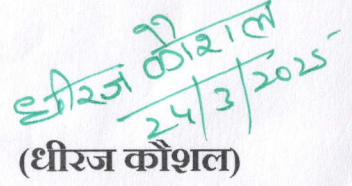 धीरज कौशल
24/3/2025
(धीरज कौशल)